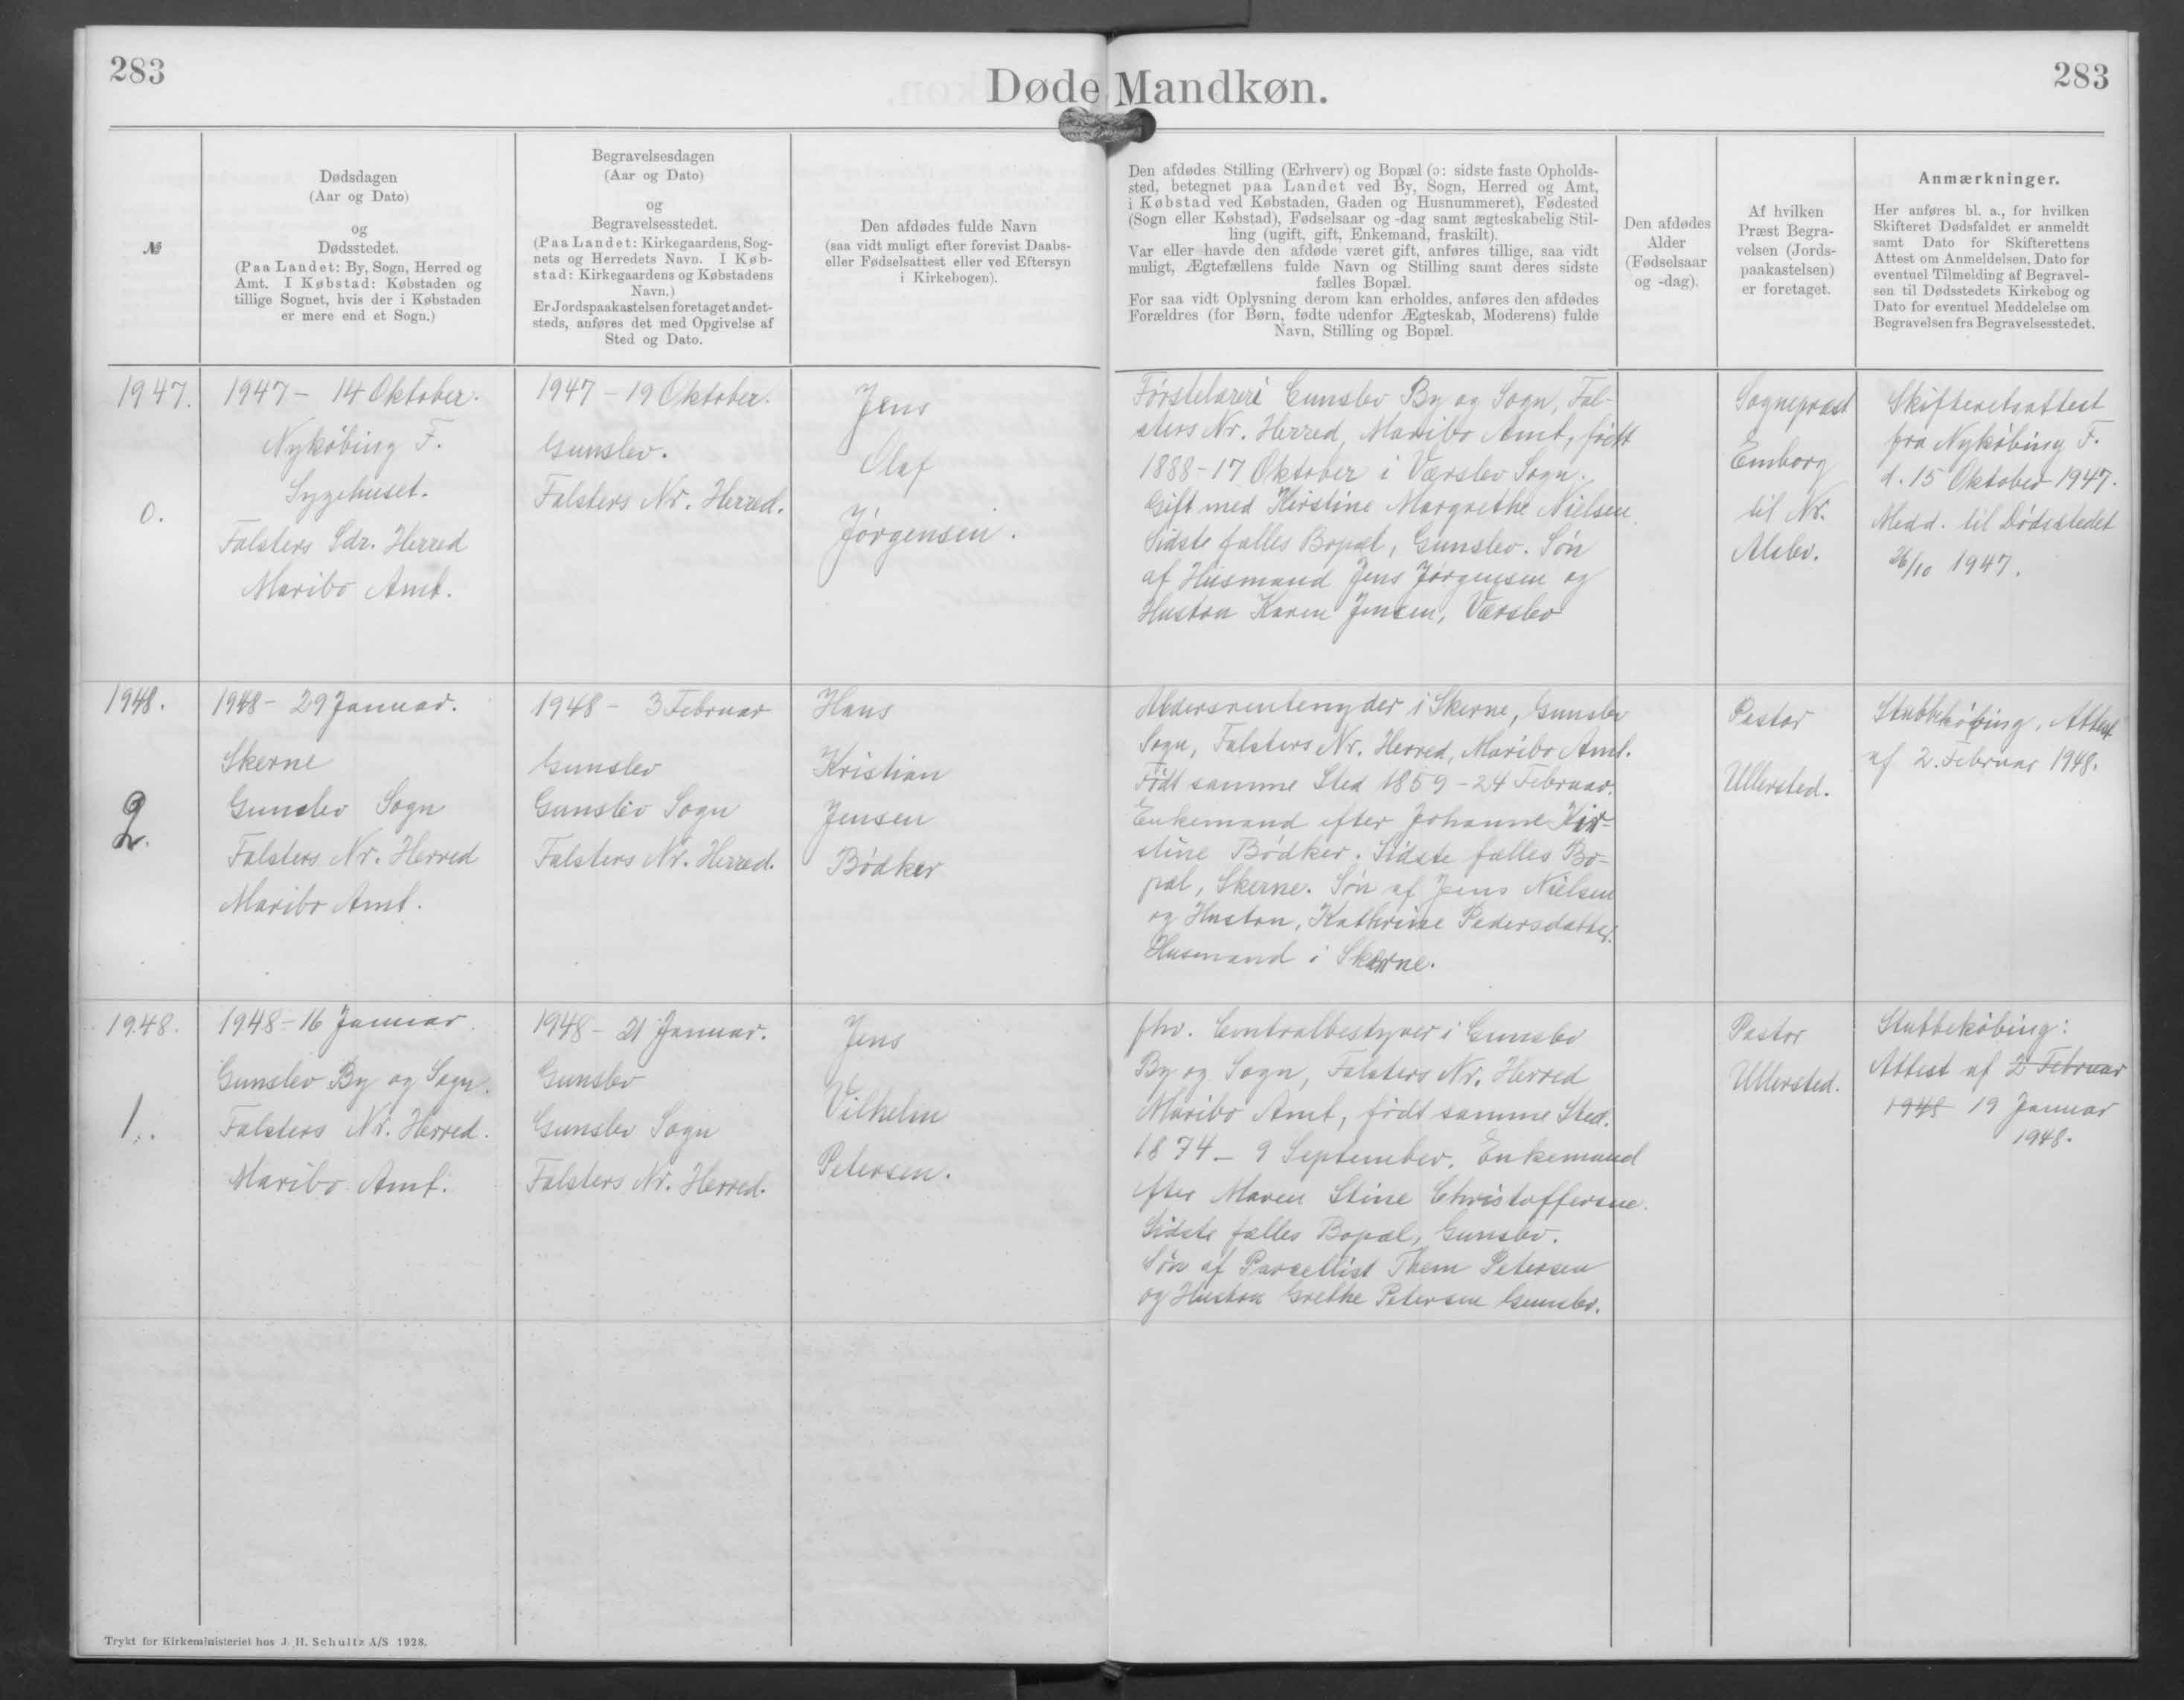 283
Døde Mandkøn.
283
№
Dødsdagen
(Aar og Dato)
og
Dødsstedet.
(Paa Landet: By, Sogn, Herred og
Amt. I Købstad: Købstaden og
tillige Sognet, hvis der i Købstaden
er mere end et Sogn.)
Begravelsesdagen
(Aar og Dato)
og
Begravelsesstedet.
(Paa Landet: Kirkegaardens, Sog-
nets og Herredets Navn. I Køb-
stad: Kirkegaardens og Købstadens
Navn.)
Er Jordspaakastelsen foretaget andet-
steds, anføres det med Opgivelse af
Sted og Dato.
Den afdødes fulde Navn
(saa vidt muligt efter forevist Daabs-
eller Fødselsattest eller ved Eftersyn
i Kirkebogen).
Den afdødes Stilling (Erhverv) og Bopæl (ɔ: sidste faste Opholds-
sted, betegnet paa Landet ved By, Sogn, Herred og Amt,
i Købstad ved Købstaden, Gaden og Husnummeret), Fødested
(Sogn eller Købstad), Fødselsaar og -dag samt ægteskabelig Stil-
ling (ugift, gift, Enkemand, fraskilt).
Var eller havde den afdøde været gift, anføres tillige, saa vidt
muligt, Ægtefællens fulde Navn og Stilling samt deres sidste
fælles Bopæl.
For saa vidt Oplysning derom kan erholdes, anføres den afdødes
Forældres (for Børn, fødte udenfor Ægteskab, Moderens) fulde
Navn, Stilling og Bopæl.
Den afdødes
Alder
(Fødselsaar
og -dag).
Af hvilken
Præst Begra-
velsen (Jords-
paakastelsen)
er foretaget.
Anmærkninger.
Her anføres bl. a., for hvilken
Skifteret Dødsfaldet er anmeldt
samt Dato for Skifterettens
Attest om Anmeldelsen, Dato for
eventuel Tilmelding af Begravel-
sen til Dødsstedets Kirkebog og
Dato for eventuel Meddelelse om
Begravelsen fra Begravelsesstedet.
1947.
0.
1947 - 14 Oktober.
Nykøbing F.
Sygehuset.
Falsters Sdr. Herred
Maribo Amt.
1947 - 19 Oktober.
Gunslev.
Falsters Nr. Herred.
Jens
Olaf
Jørgensen.
Førstelærer i Gunslev By og Sogn, Fal-
sters Nr. Herred, Maribo Amt, født
1888 - 17 Oktober i Værslev Sogn.
Gift med Kirstine Margrethe Nielsen
Sidste fælles Bopæl, Gunslev. Søn
af Husmand Jens Jørgensen og
Hustru Karen Jensen, Værslev
Sognepræst
Emborg
til Nr.
Alslev.
Skifteretsattest
fra Nykøbing F.
d. 15 Oktober 1947.
Medd. til Dødsstedet
26/10 1947.
1948.
2.
1948 - 29 Januar.
Skerne
Gunslev Sogn
Falsters Nr. Herred
Maribo Amt.
1948 - 3 Februar
Gunslev
Gunslev Sogn
Falsters Nr. Herred.
Hans
Kristian
Jensen
Bødker
Aldersrentenyder i Skerne, Gunslev
Sogn, Falsters Nr. Herred, Maribo Amt.
Født samme Sted 1859 - 24 Februar.
Enkemand efter Johanne Kir-
stine Bødker. Sidste fælles Bo-
pæl, Skerne. Søn af Jens Nielsen
og Hustru, Kathrine Pedersdatter.
Husmand i Skerne.
Pastor
Ullersted.
Stubbekøbing, Attest
af 2. Februar 1948.
1948.
1.
1948 - 16 Januar.
Gunslev By og Sogn.
Falsters Nr. Herred.
Maribo Amt.
1948 - 21 Januar.
Gunslev
Gunslev Sogn
Falsters Nr. Herred.
Jens
Vilhelm
Petersen.
fhv. Centralbestyrer i Gunslev
By og Sogn, Falsters Nr. Herred
Maribo Amt, født samme Sted.
1874 - 9 September. Enkemand
efter Maren Stine Christoffersen.
Sidste fælles Bopæl, Gunslev.
Søn af Parcellist Them Petersen
og Hustru Grethe Petersen Gunslev.
Pastor
Ullersted.
Stubbekøbing:
Attest af 2 Februar
1948 19 Januar
1948.
Trykt for Kirkeministeriet hos J. H. Schultz A/S 1928.